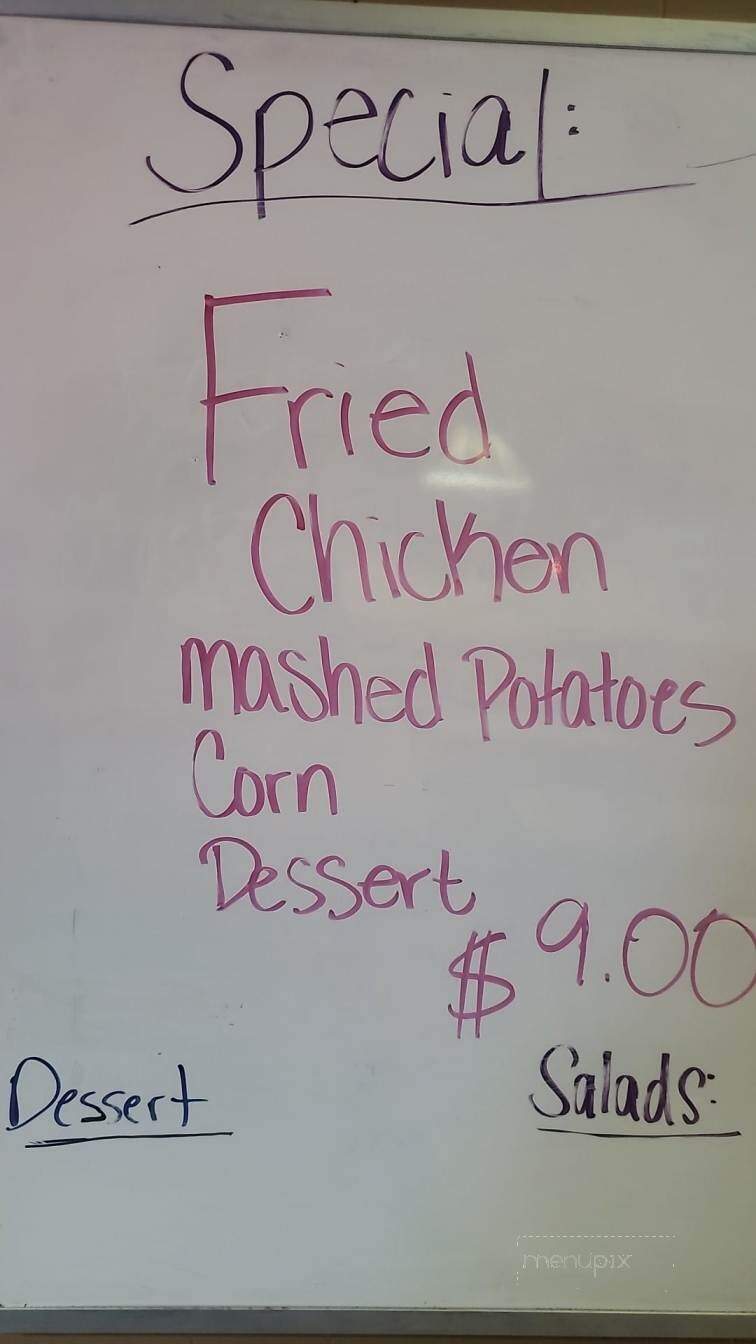 Special:
Fried
Chicken
mashed Potatoes
Corn
Dessert
$9.00
Dessert
Salads:
menupix